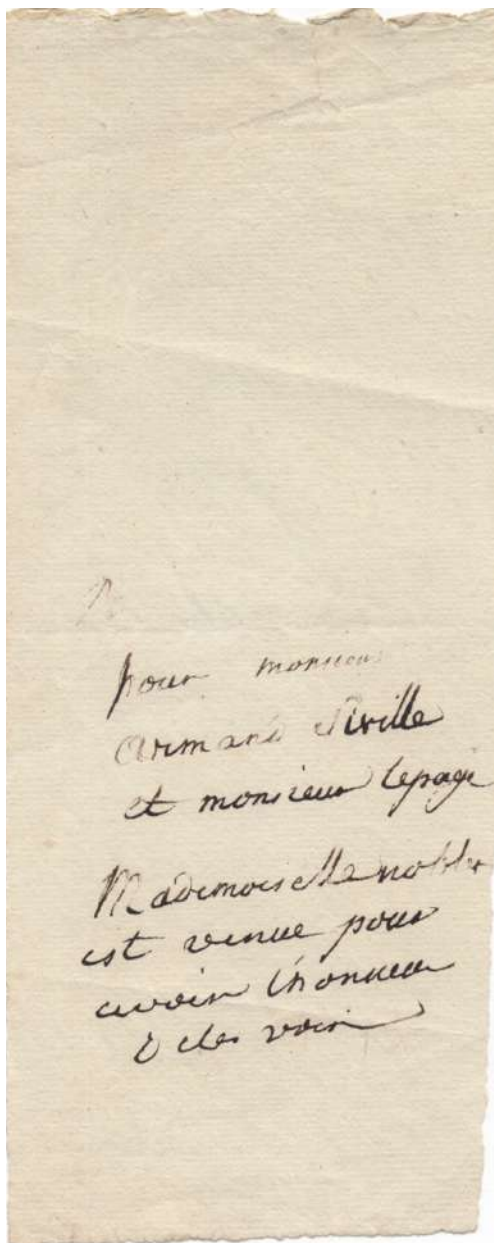 pour monsieur
armand
et monsieur lepage
Mademoiselle
est venue pour
avoir lhonneur
de les voir